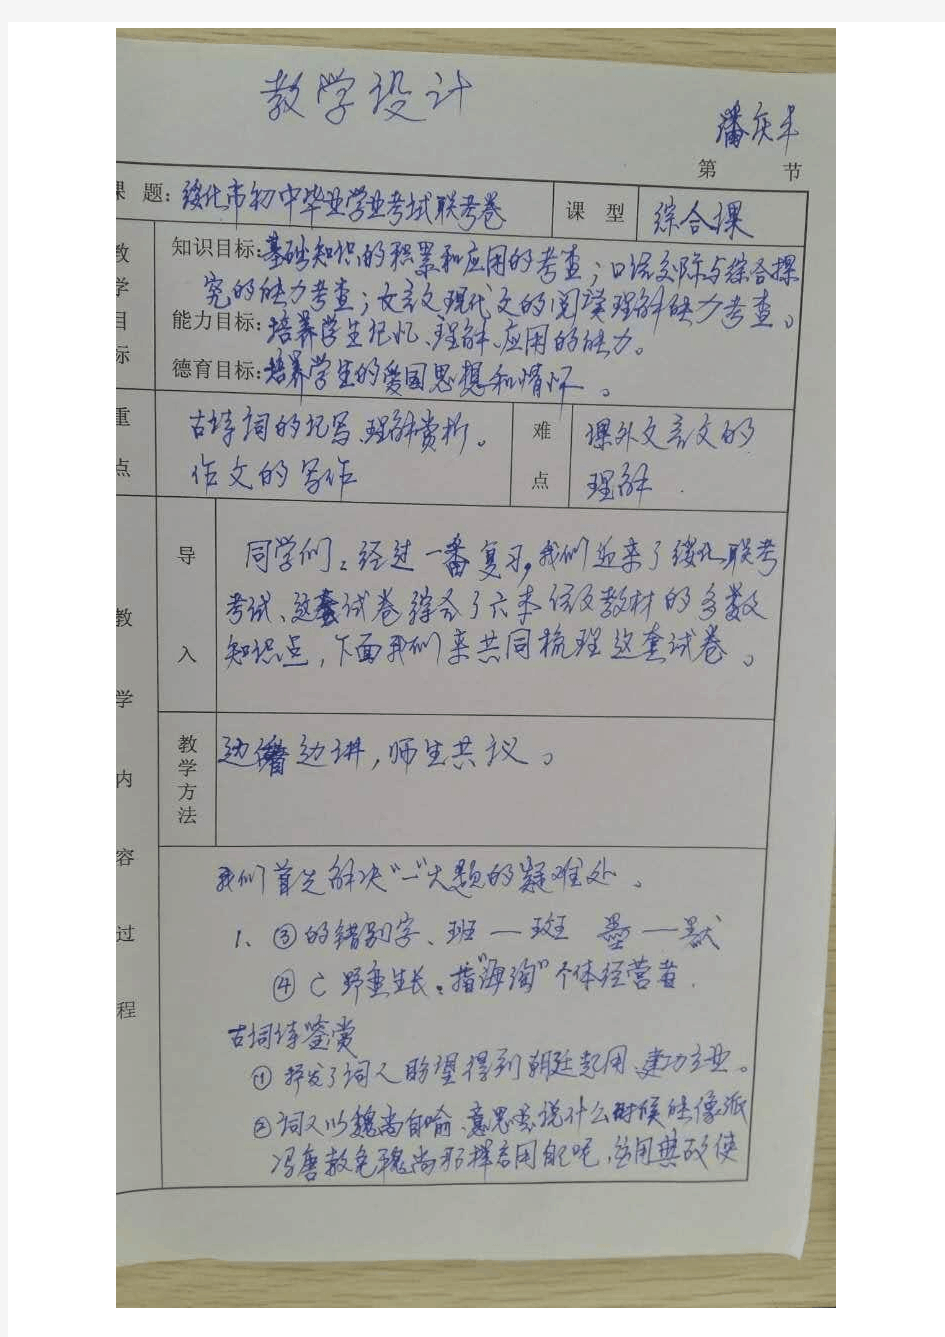 教学设计
潘庆丰
第 节
课 题: 绥化市初中毕业学业考试联考卷
课 型 综合课
教学目标
知识目标:基础知识的积累和应用的考查;口语交际与综合探
究的能力考查;文言文现代文的阅读理解能力考查。
能力目标:培养学生记忆、理解、应用的能力。
德育目标:培养学生的爱国思想和情怀。
重点
古诗词的记写、理解赏析。
作文的写作
难点
课外文言文的
理解.
教学内容过程
导入
同学们:经过一番复习,我们迎来了绥化联考
考试、这套试卷综合了六本语文教材的多数
知识点,下面我们来共同梳理这套试卷。
教学方法
边 边讲,师生共议。
我们首先解决“一”大题的疑难处。
1、③的错别字、班—斑 墨—默
④C 野蛮生长。指“海淘”个体经营者.
古词诗鉴赏
①抒发了词人盼望得到朝廷起用、建功立业。
②词人以魏尚自喻、意思是说什么时候能像派
冯唐赦免魏尚那样启用自己呢,运用典故使